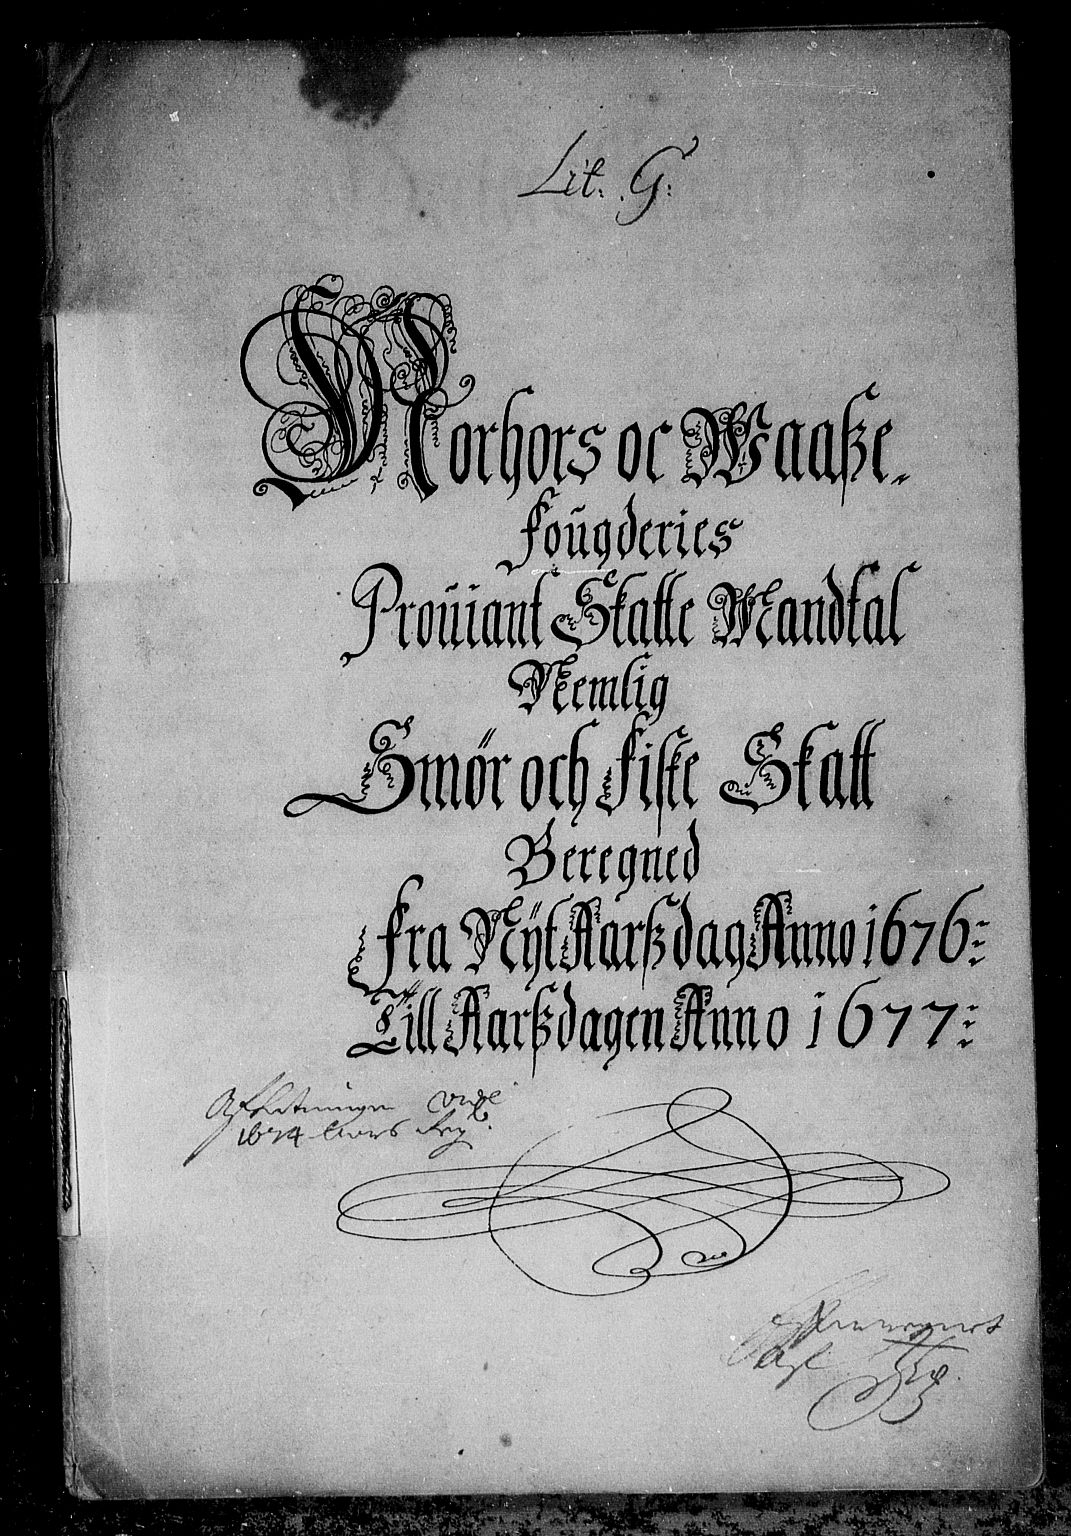 Lit. G:
Norhors oc Waaße.
fougderies
Prouiant Skatte Mandtal
Nemlig
Smør och fiske Skatt
Beregned
fra Nyt Aarßdag Anno 1676:
Till Aarßdagen Anno 1677:
1674